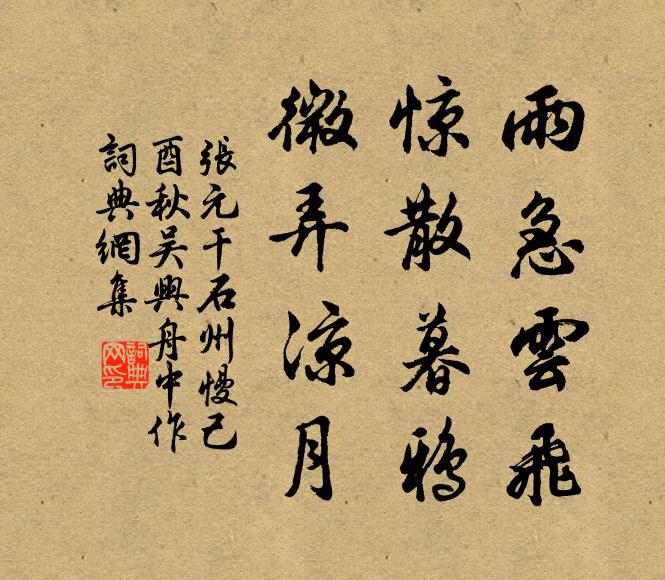 雨急雲飛
惊散暮鴉
微弄涼月
張元干石州慢己
酉秋吴興舟中作
詞典網集
詞典
网印